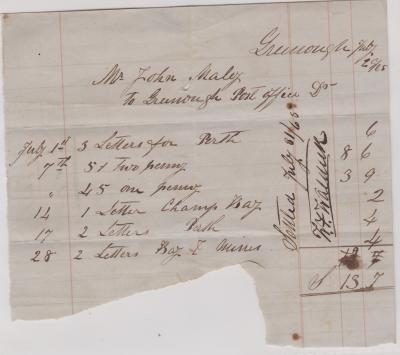 Greenough July
29/65
Mr John Maley
To Greenough Post Office Dr
July 1st 3 Letters for Perth 6
7th 51 two penny 8 6
" 45 one penny 3 9
14 1 Letter Champ Bay 2
17 2 Letters Perth 4
28 2 Letters Bay & Mines 4
13 7
Settled July 31/65